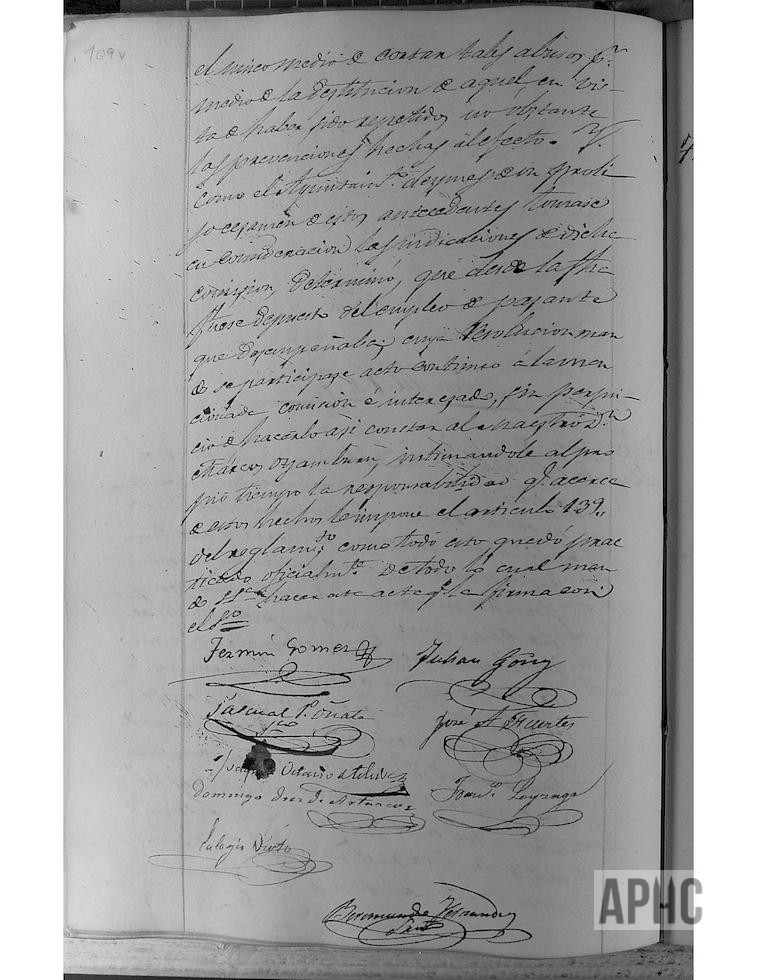 109v
el unico medio de cortar tales abusos p.r
medio de la destitucion de aquel, en vis-
ta de haber sido repetidos, no obstante
las prevenciones hechas al efecto. Y.
como el Ayuntam.to despues de un proli
jo ecsamen de estos antecedentes tomase
en consideracion las indicaciones de dicha
comision, determinó, que desde la fha
fuese depuesto del empleo de pasante
que desempeñaba; cuya resolucion man
dó se participase acto continuo á la men
cionada comision é interesado, sin perjui-
cio de hacerlo asi constar al maestro D.n
Marcos Oyamburu, intimandole al pro
pio tiempo la responsabilidad q.e acerca
de estos hechos le impone el articulo 139,,
del reglam.to como todo esto quedó prac
ticado oficialm.te De todo lo cual man
do hacer esta acta q.e la firma con
el
Fermin Gomez
Julian Goñy
Pascual P. Oñate
José A Huertes
Octavio de Toledo
Domingo Diez de
Fran.co
Eulogio Nieto
Beremundo Hernandez
APHC